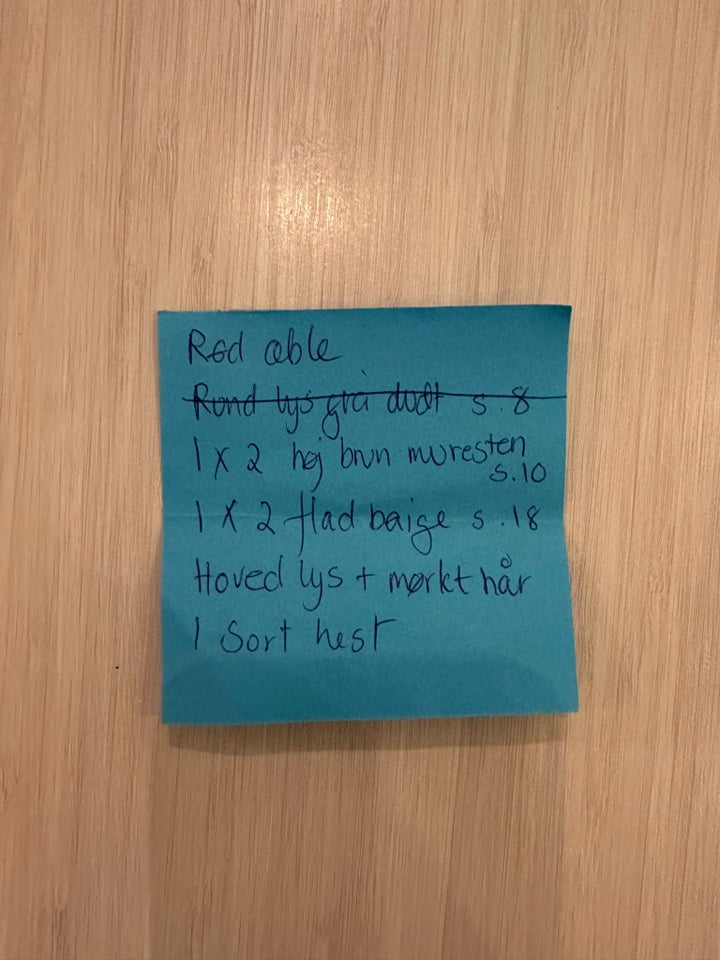 Rød æble
Rund lys grå dudt s. 8
1 x 2 høj brun muresten
s.10
1 x 2 flad baige s. 18
Hoved lys + mørkt hår
1 Sort hest